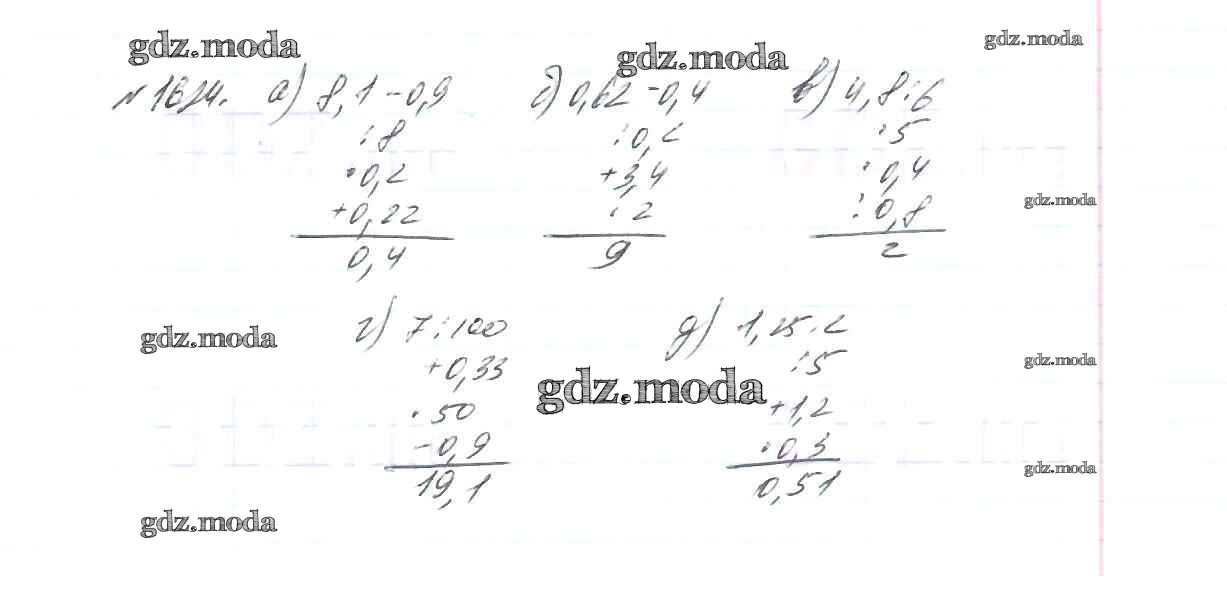 gdz.moda gdz.moda gdz.moda
№ 1624. а) 8,1 - 0,9 б) 0,62 - 0,4 в) 4,8 : 6
: 8 : 0,2 : 5
· 0,2 + 3,4 · 0,4
+ 0,22 · 2 : 0,8 gdz.moda
0,4 9 2
г) 7 : 100 д) 1,25 · 2
gdz.moda + 0,33 : 5 gdz.moda
· 50 + 1,2 gdz.moda
- 0,9 · 0,3
19,1 0,51 gdz.moda
gdz.moda